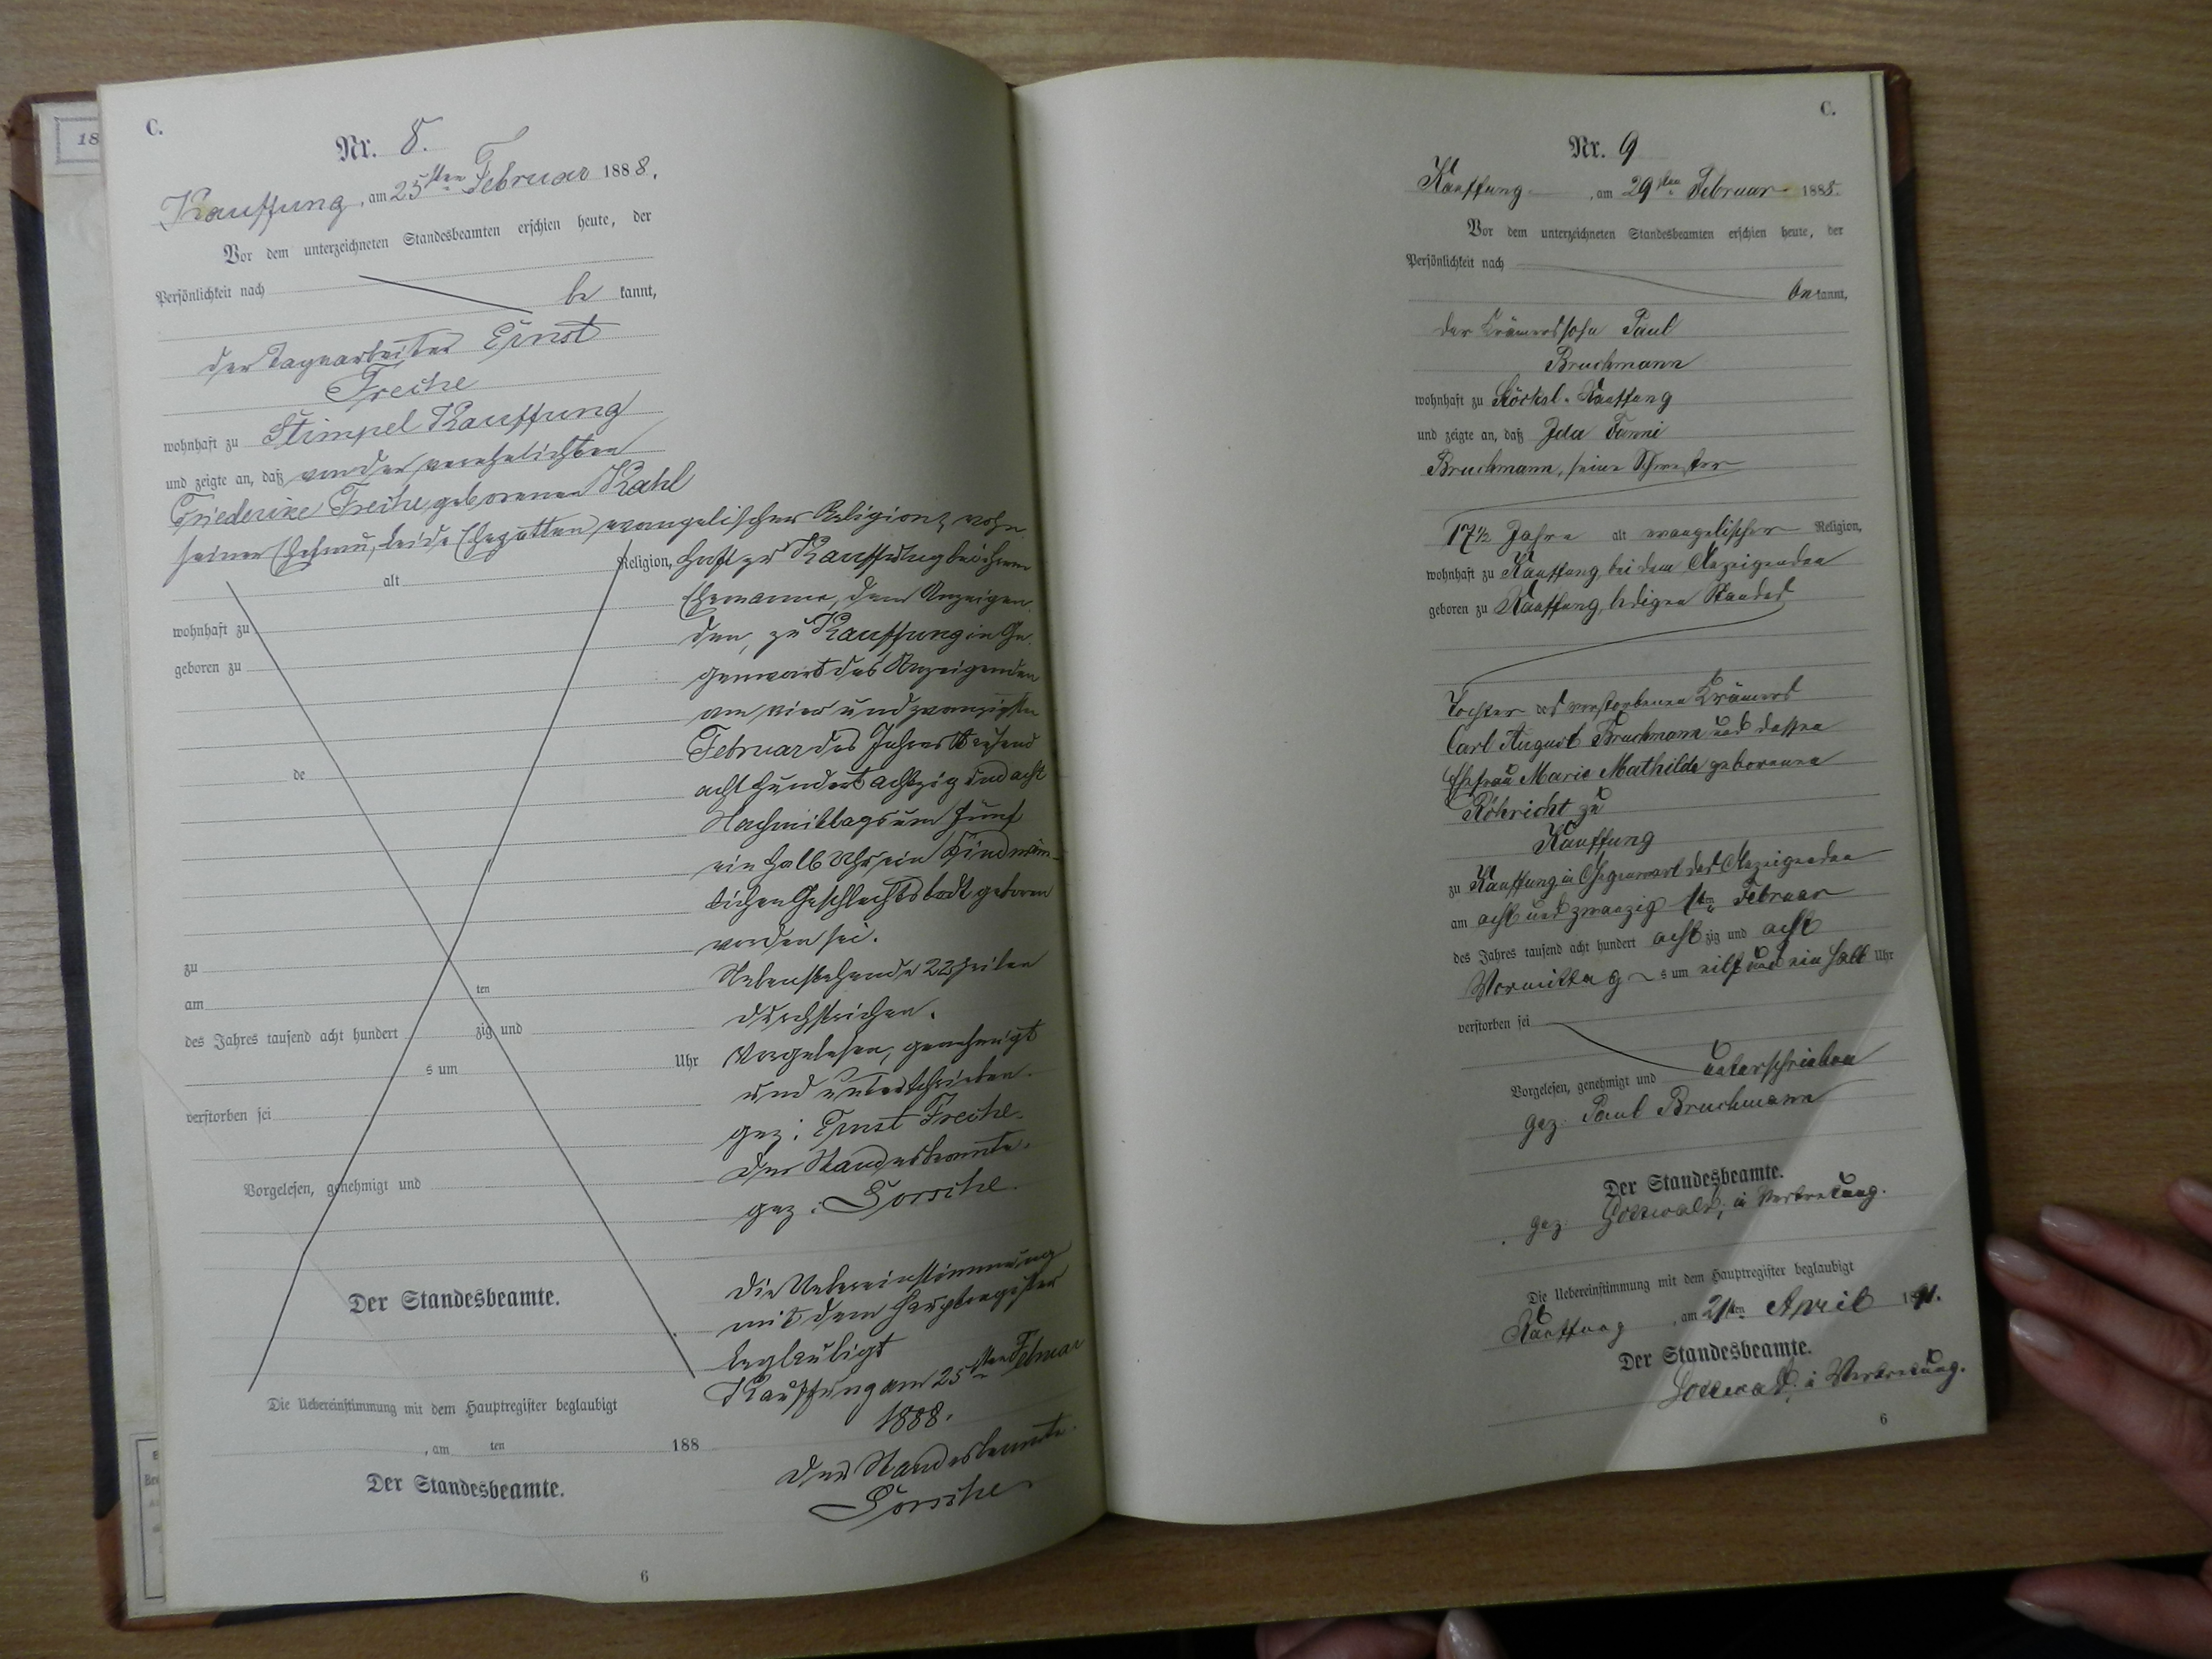 18
C.
Nr. 8.
Kauffung, am 25sten Februar 1888.
Vor dem unterzeichneten Standesbeamten erschien heute, der
Persönlichkeit nach
be kannt,
der Tagearbeiter Ernst
Freche
wohnhaft zu Stimpel Kauffung
und zeigte an, daß von der verehelichten
Friederike Freche geborenen Kahl
seiner Ehefrau, beide Ehegatten evangelischer Religion, wohn
alt Religion, haft zu Kauffung bei ihrem
Ehemanne, dem Anzeigen
wohnhaft zu den, zu Kauffung in Ge
geboren zu genwart des Anzeigenden
am vier und zwanzigsten
Februar des Jahres tausend
de acht hundert achtzig und acht
Nachmittags um fünf
ein halb Uhr ein Kind männ-
lichen Geschlechts todt geboren
worden sei.
zu Nebenstehende 22 Zeilen
am ten durchstrichen.
des Jahres tausend acht hundert zig und
s um Uhr Vorgelesen, genehmigt
und unterschrieben.
verstorben sei gez: Ernst Freche.
Der Standesbeamte.
Vorgelesen, genehmigt und gez:
Der Standesbeamte.
Die Uebereinstimmung
mit dem Hauptregister
beglaubigt
Kauffung am 25sten Februar
1888.
Der Standesbeamte.
Die Uebereinstimmung mit dem Hauptregister beglaubigt
, am ten 188
Der Standesbeamte.
6
C.
Nr. 9
Kauffung, am 29sten Februar 1888.
Vor dem unterzeichneten Standesbeamten erschien heute, der
Persönlichkeit nach
be kannt,
der Krämerssohn Paul
Bruchmann
wohnhaft zu Kauffung
und zeigte an, daß Ida Fanni
Bruchmann, seine Schwester
17½ Jahre alt evangelischer Religion,
wohnhaft zu Kauffung, bei dem Anzeigenden
geboren zu Kauffung, ledigen Standes
Tochter des verstorbenen Krämers
Carl August Bruchmann und dessen
Ehefrau Marie Mathilde geborenen
Röhricht zu
Kauffung
zu Kauffung in Gegenwart des Anzeigenden
am acht und zwanzigsten Februar
des Jahres tausend acht hundert acht zig und acht
Vormittag s um elf und ein halb Uhr
verstorben sei
Vorgelesen, genehmigt und unterschrieben
gez: Paul Bruchmann
Der Standesbeamte.
gez: in Vertretung.
Die Uebereinstimmung mit dem Hauptregister beglaubigt
Kauffung, am 21ten April
Der Standesbeamte.
in Vertretung.
6